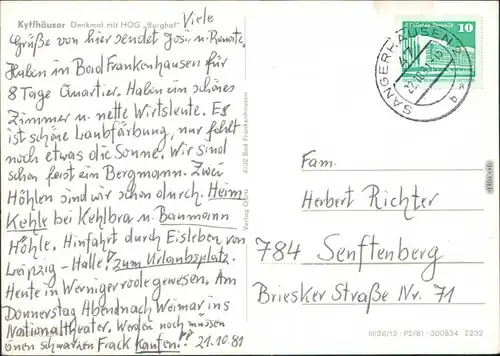 Kyffhäuser Denkmal mit HOG „Burghof"
Viele
Grüße von hier sendet Josi u. Renate.
Haben in Bad Frankenhausen für
8 Tage Quartier. Haben ein schönes
Zimmer u. nette Wirtsleute. Es
ist schöne Laubfärbung, nur fehlt
noch etwas die Sonne. Wir sind
schon fast ein Bergmann. Zwei
Höhlen sind wir schon durch. Heim
Kehle bei Kehlbra u. Baumann
Höhle. Hinfahrt durch Eisleben von
Leipzig - Halle! zum Urlaubsplatz.
Heute in Wernigerode gewesen. Am
Donnerstag Abend nach Weimar ins
Nationaltheater. Werden noch müssen
einen schwarzen Frack kaufen!! 21.10.81
4732 Bad Frankenhausen
SANGERHAUSEN 2
47
22.10.81
10
Fam.
Herbert Richter
784 Senftenberg
Briesker Straße Nr. 71
III/26/13 · P2/81 · 300834 2232